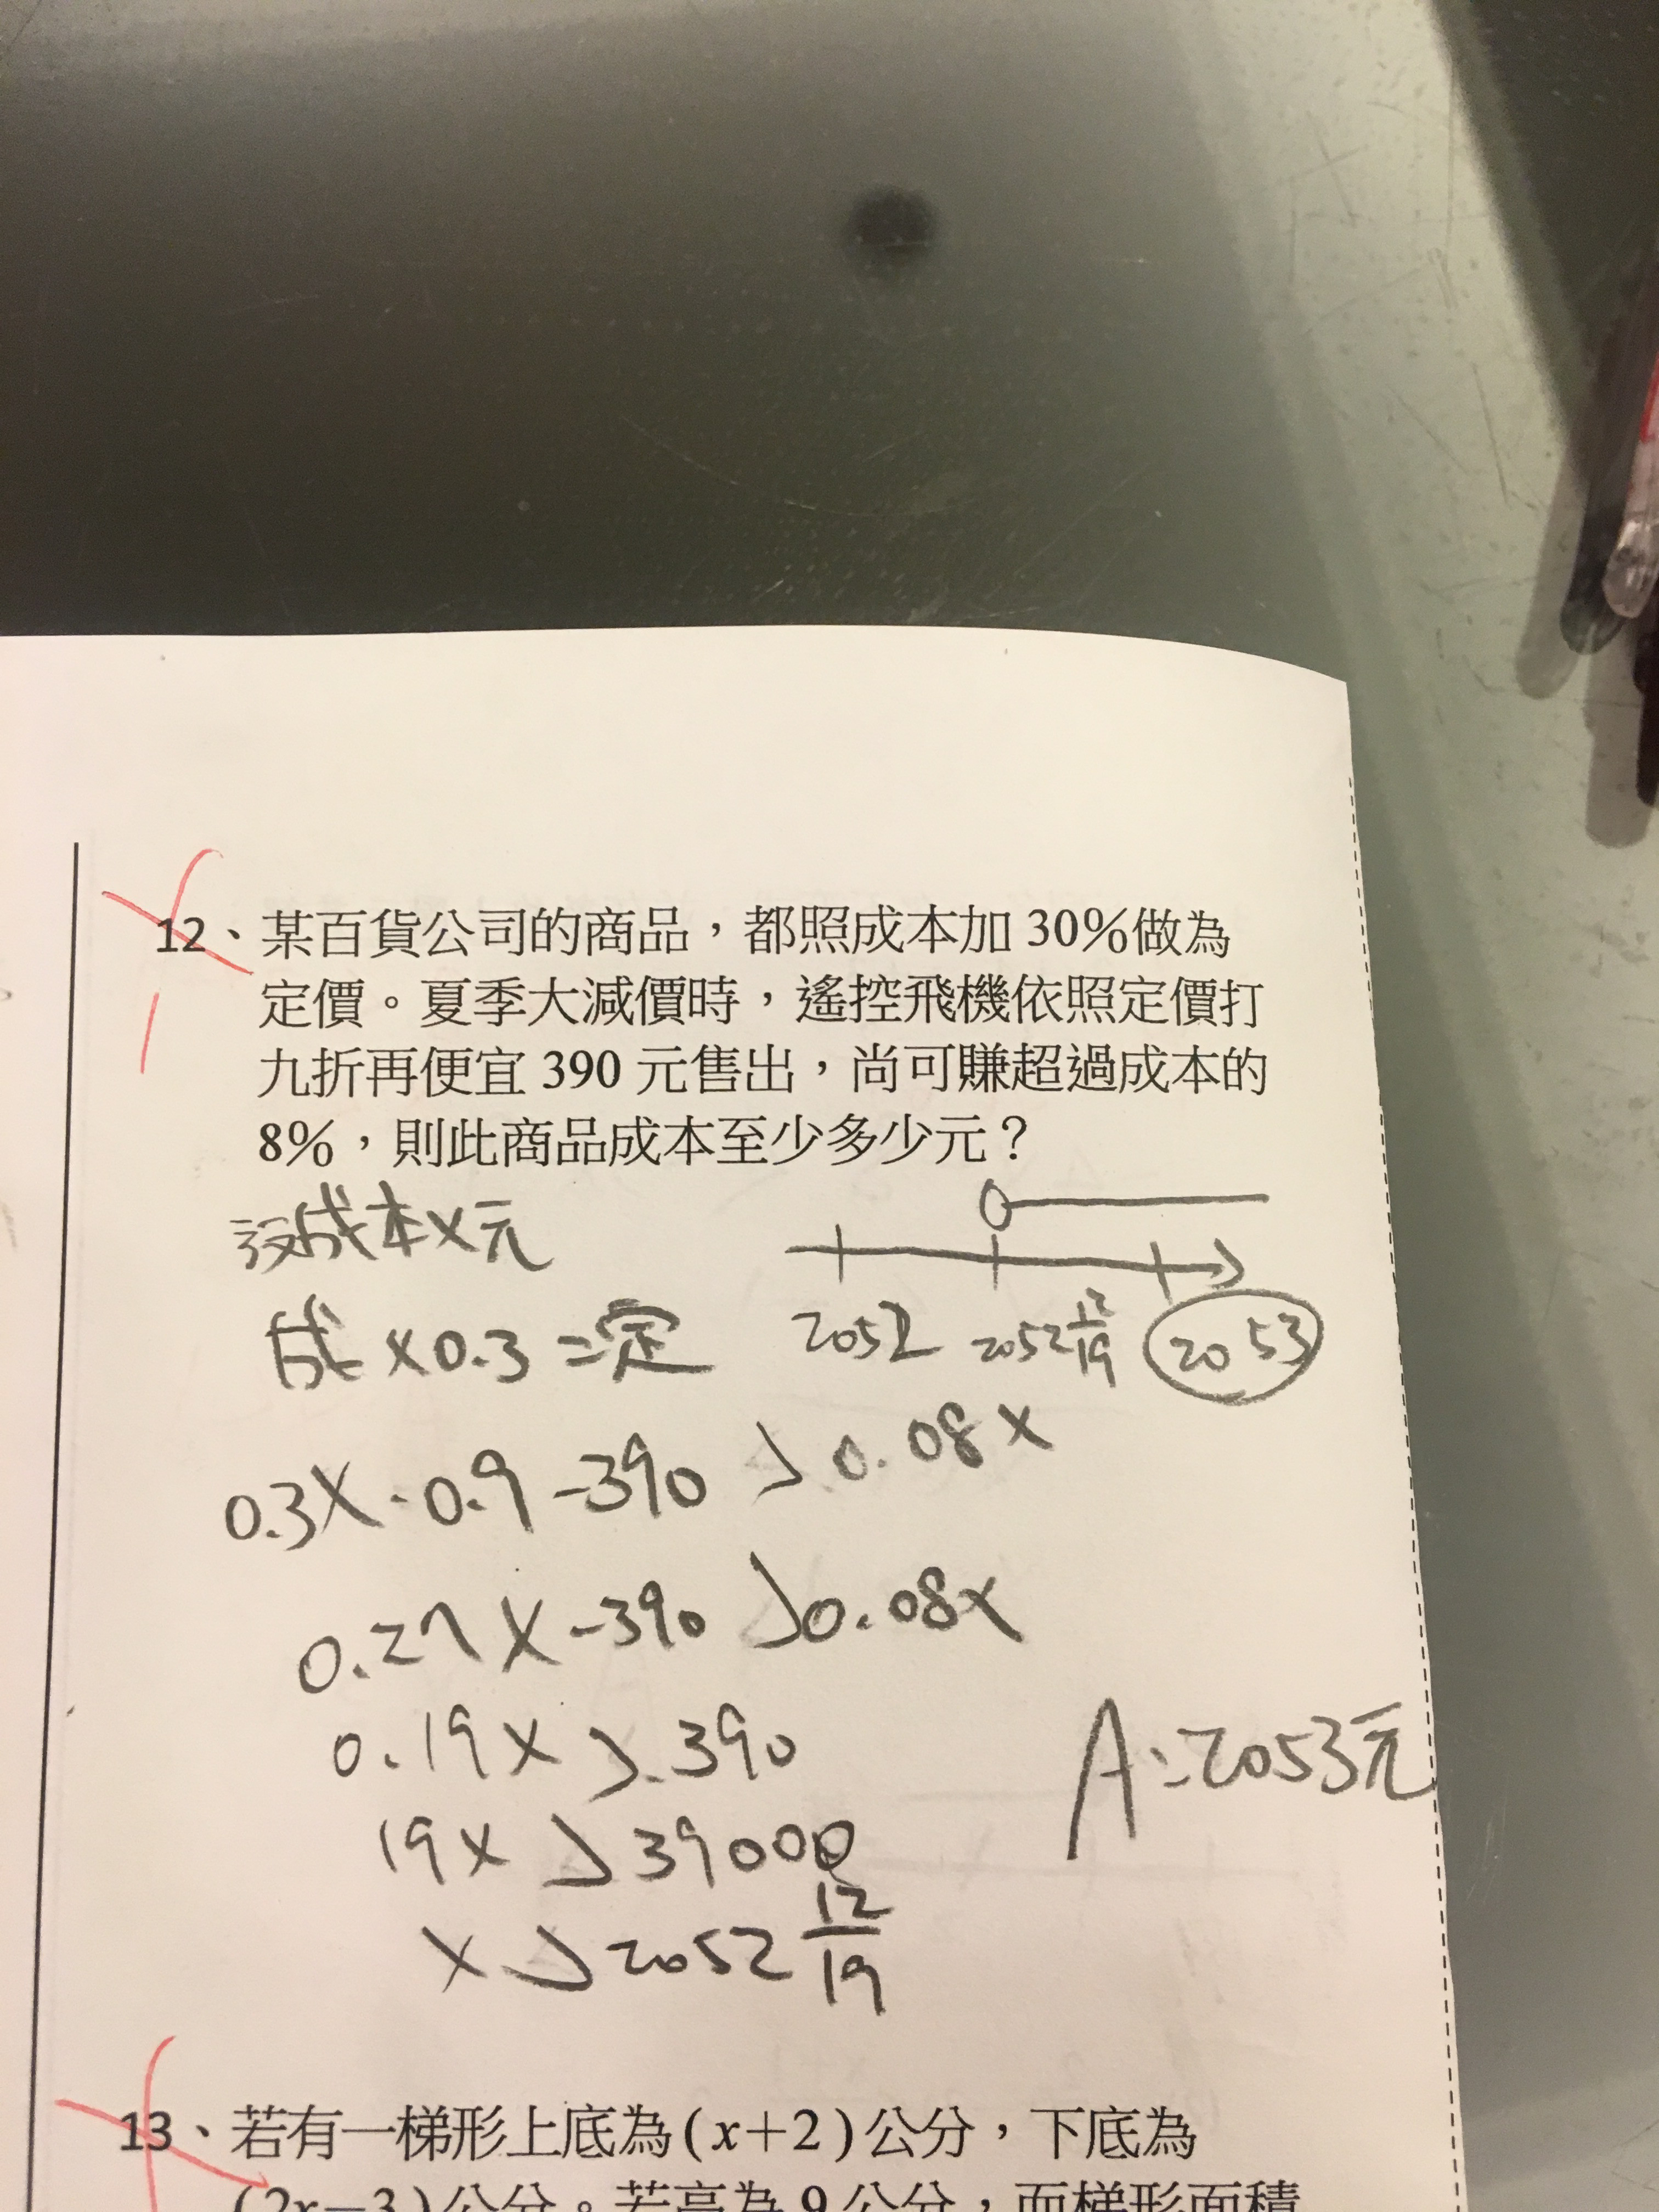 12、某百貨公司的商品，都照成本加 30%做為
定價。夏季大減價時，遙控飛機依照定價打
九折再便宜 390 元售出，尚可賺超過成本的
8%，則此商品成本至少多少元？
設成本x元
成 ×0.3=定
2052 2052 12/19 2053
0.3x·0.9-390 > 0.08x
0.27x-390 >0.08x
0.19x > 390
19x > 39000
x > 2052 12/19
A:2053元
13、若有一梯形上底為(x+2)公分，下底為
(2x-3)公分。若高為 9 公分，而梯形面積